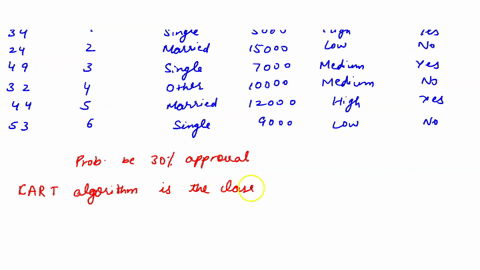 34 Single 5000 High Yes
24 2 Married 15000 Low No
49 3 Single 7000 Medium Yes
32 4 Other 10000 Medium No
44 5 Married 12000 High Yes
53 6 Single 9000 Low No
Prob. be 30% approval
CART algorithm is the close